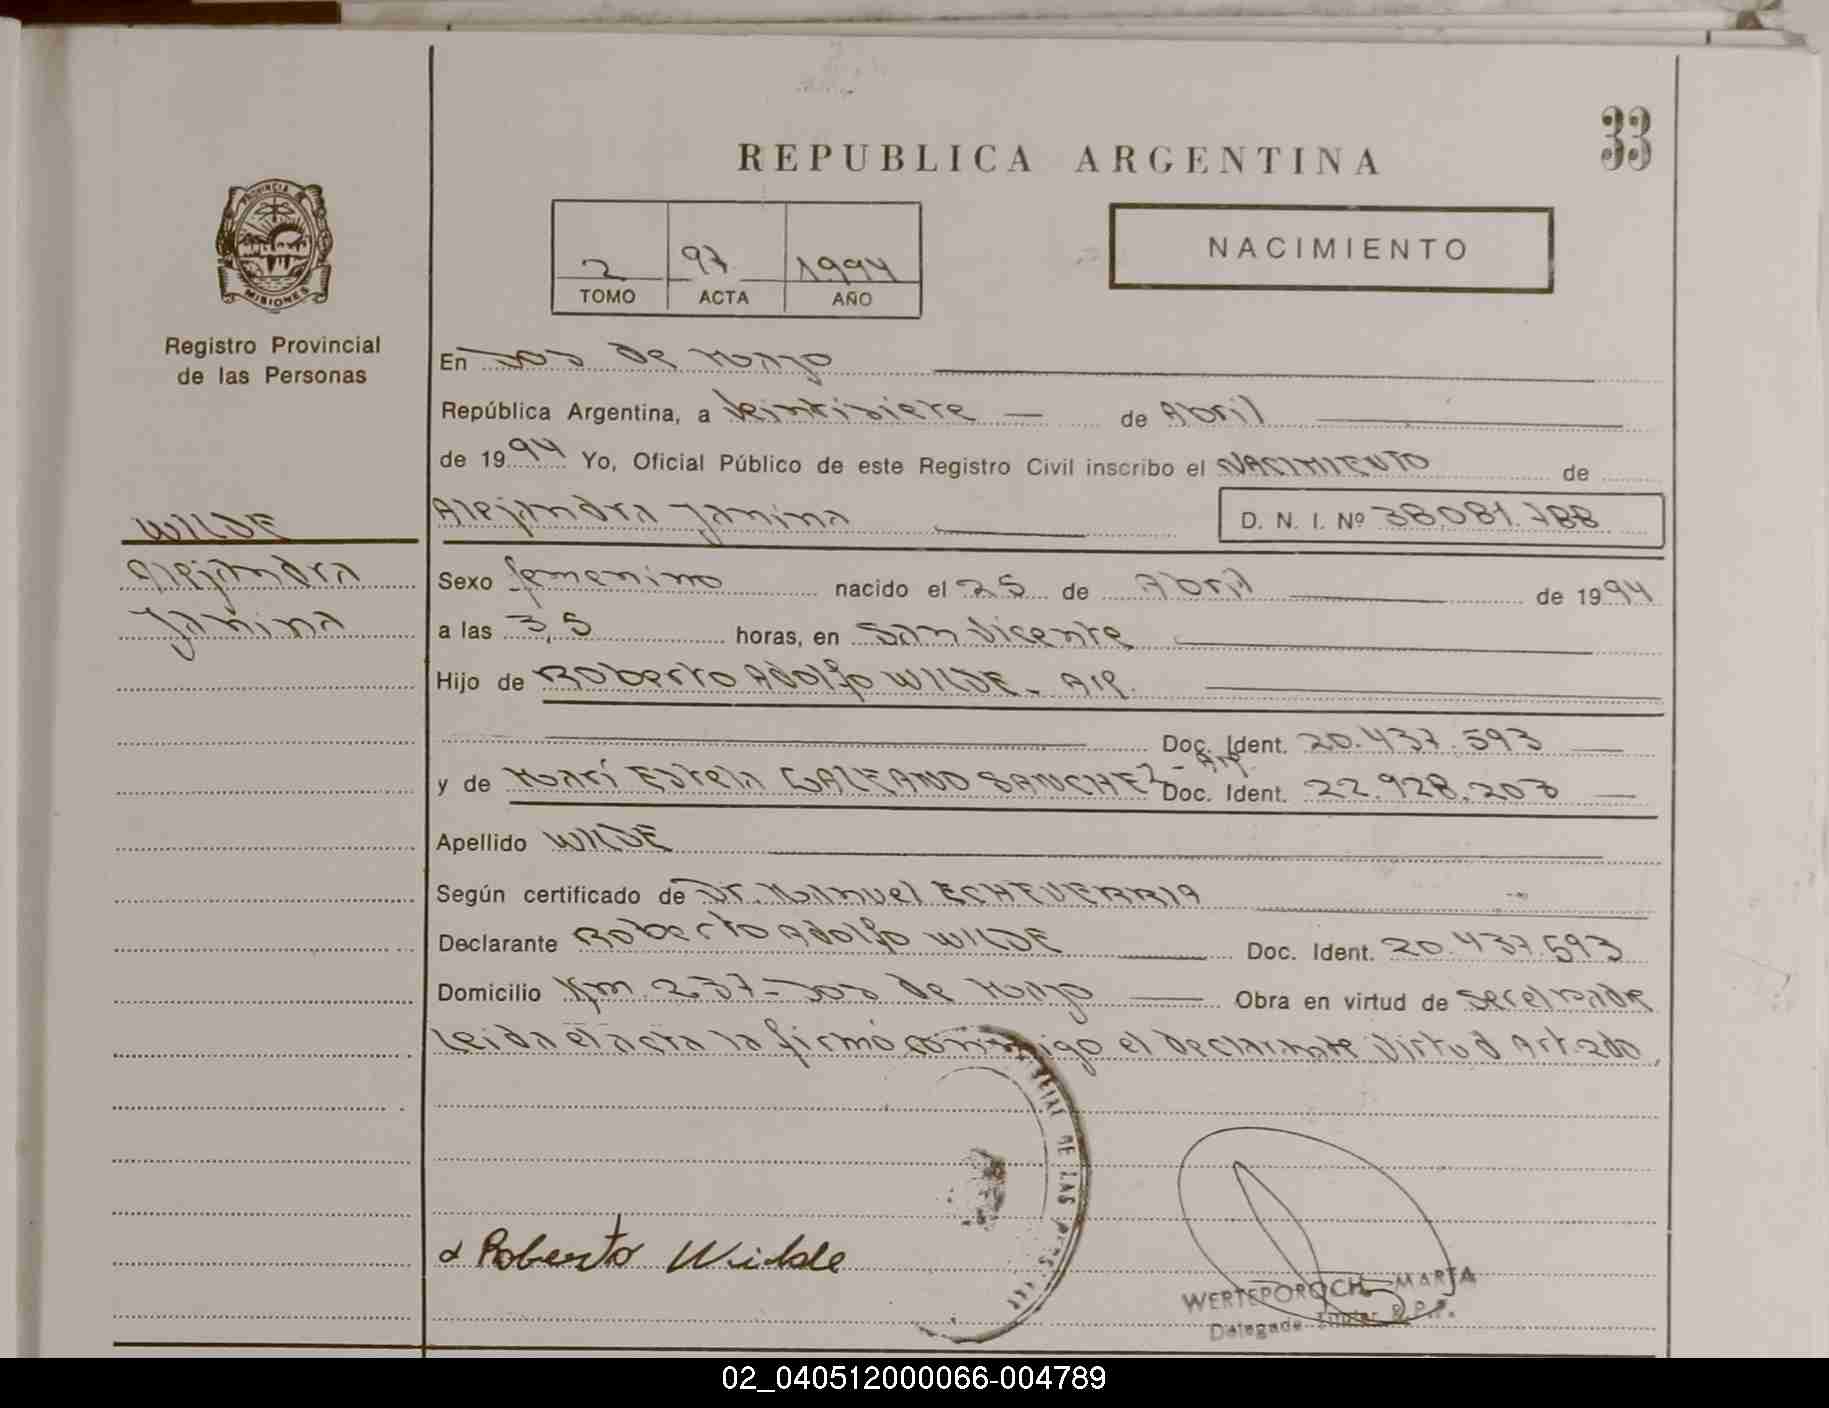 33
REPUBLICA ARGENTINA
PROVINCIA
MISIONES
Registro Provincial
de las Personas
2 97 1994
TOMO ACTA AÑO
NACIMIENTO
En Dos de Mayo
República Argentina, a Veintisiete de Abril
de 1994 Yo, Oficial Público de este Registro Civil inscribo el NACIMIENTO de
Alejandra Janina D. N. I. Nº 38081.788
WILDE
Alejandra
Janina
Sexo femenino nacido el 25 de Abril de 1994
a las 3,5 horas, en San Vicente
Hijo de Roberto Adolfo WILDE - Arg.
Doc. Ident. 20.437.593
y de Marí Estela GALEANO SANCHEZ - Arg. Doc. Ident. 22.928.207
Apellido WILDE
Según certificado de Dr. Manuel ECHEVERRIA
Declarante Roberto Adolfo WILDE Doc. Ident. 20.437.593
Domicilio Km. 237 - Dos de Mayo Obra en virtud de ser el padre
Leida el acta la firmó conmigo el declarante Virtud Art. 2do,
DE LAS
Roberto Wilde
WERTEPOROCH MARTA
Delegada Titular R.P.P.
02_040512000066-004789